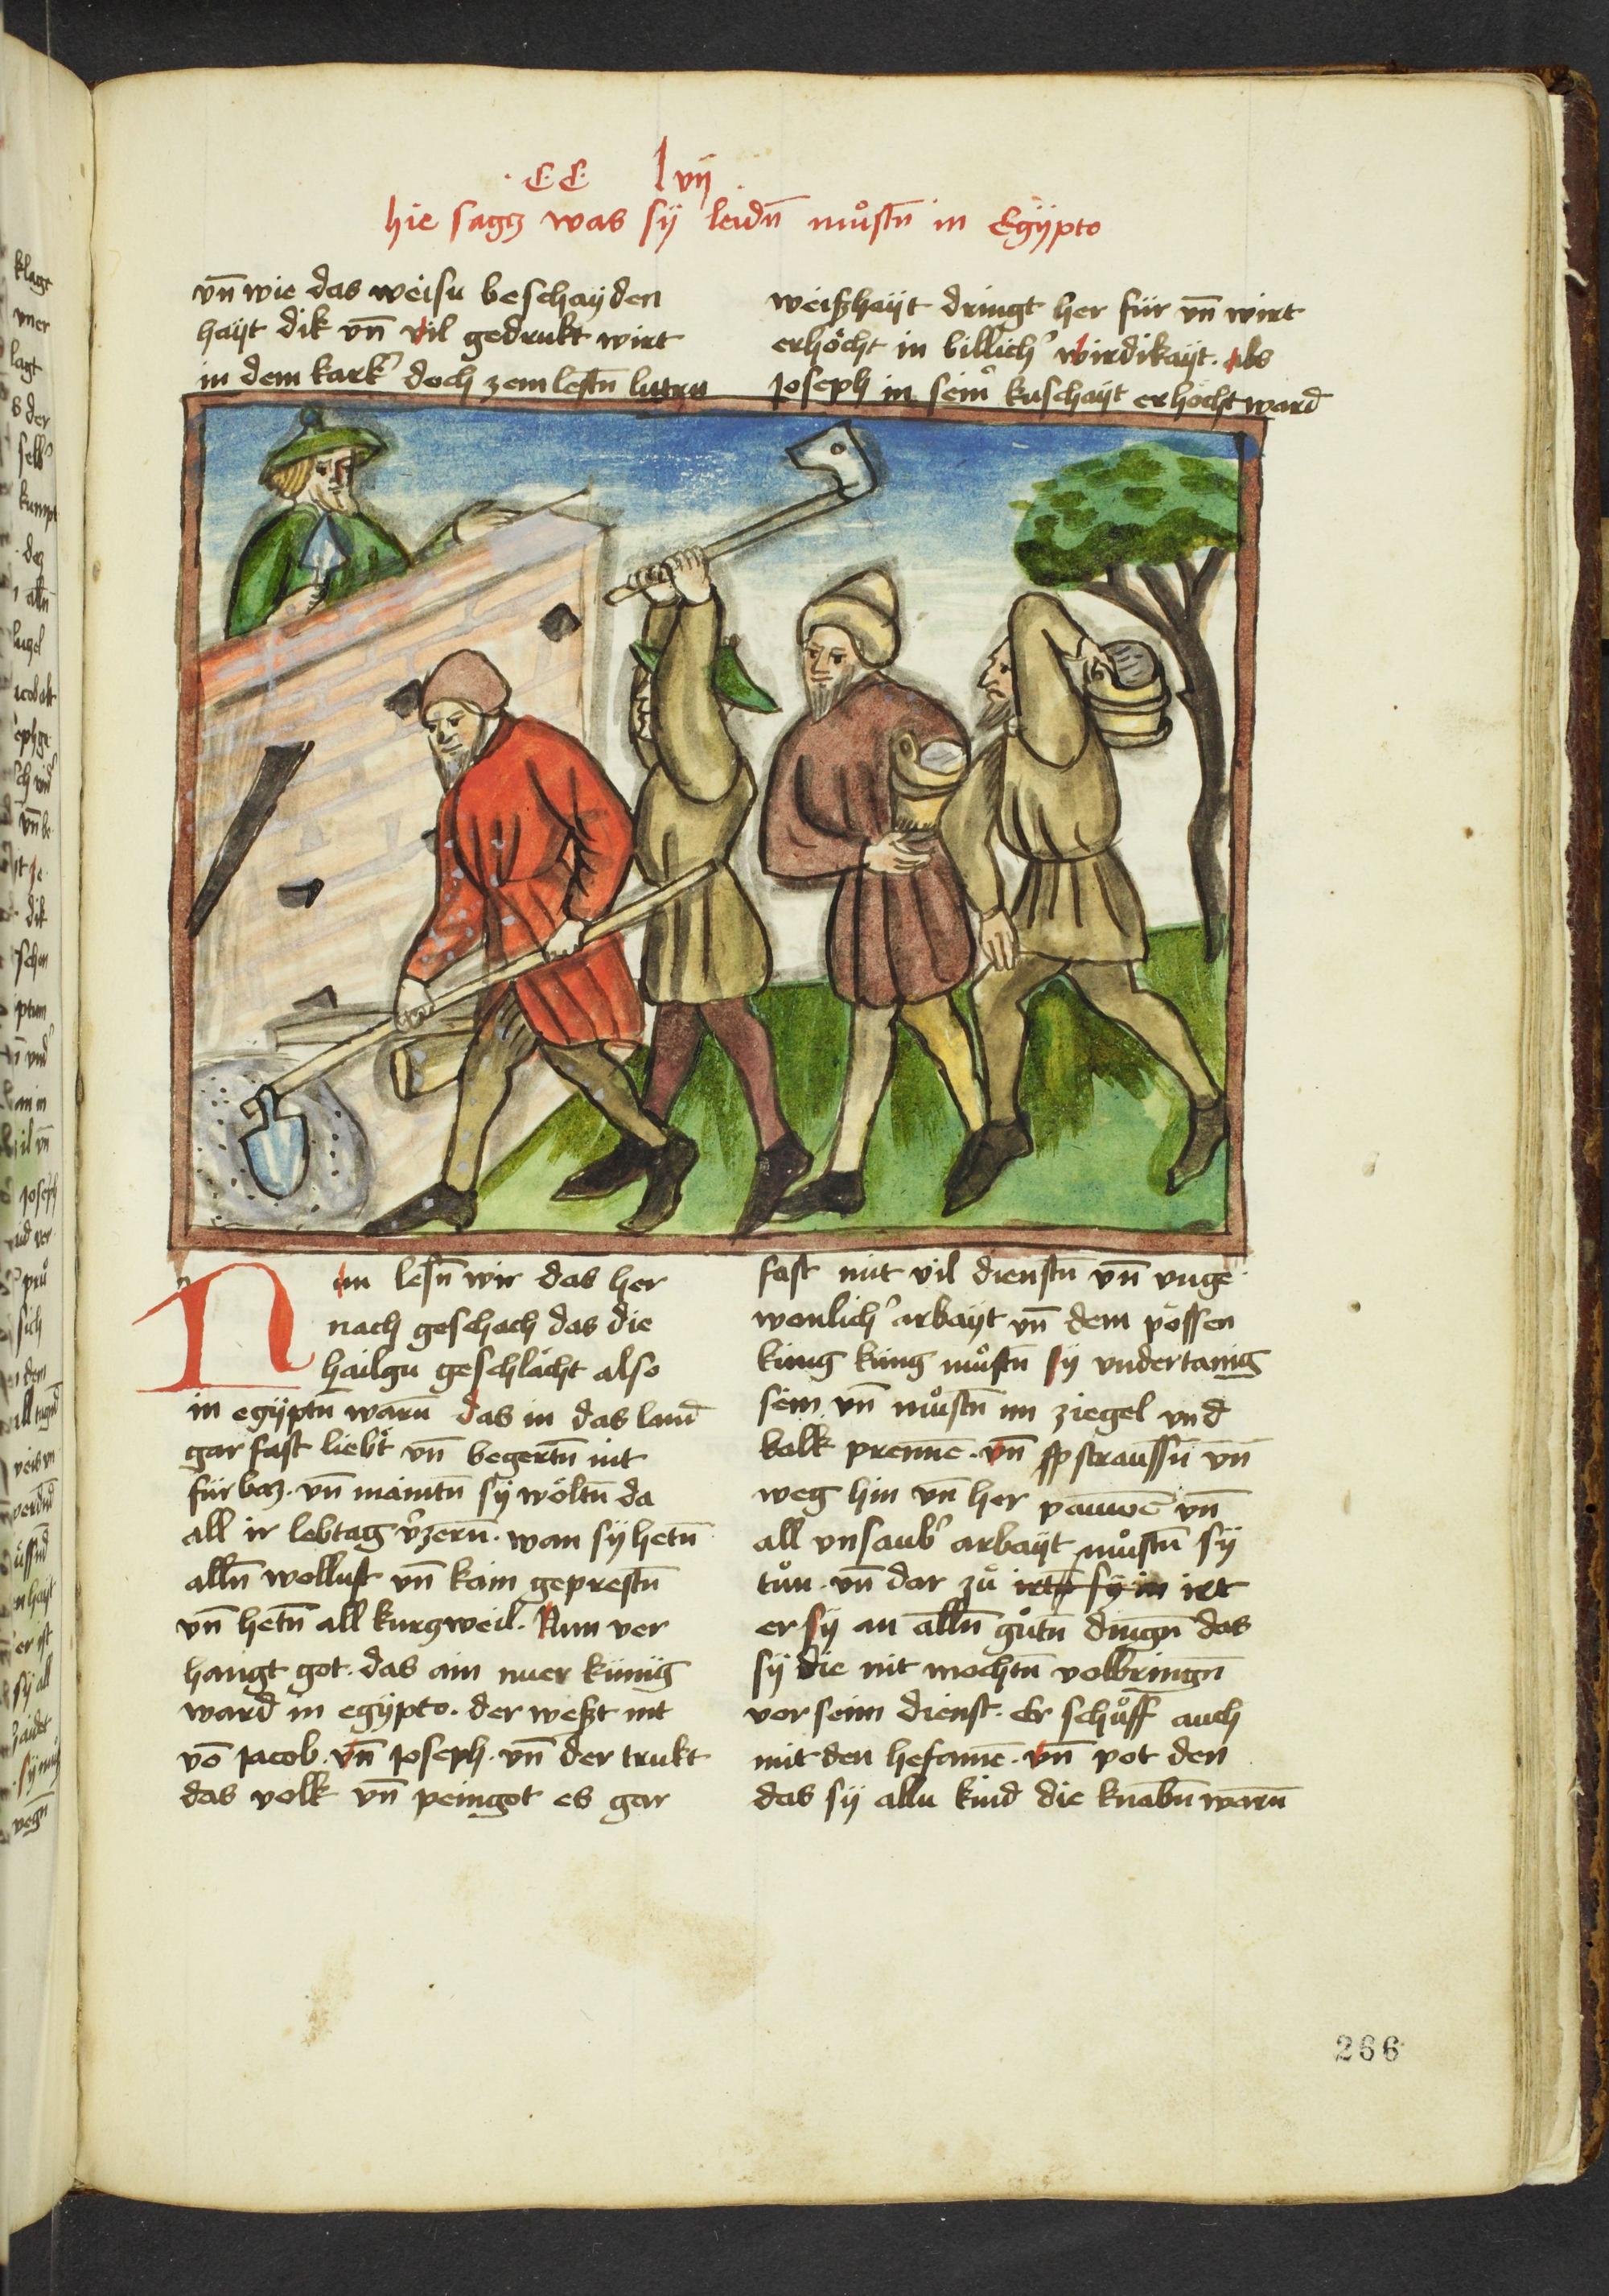 ·CC· lvij·
hie sagz was sÿ leidn̄ mu̍stn̄ in Egÿpto
vn̄ wie das weisu beschaÿden
haÿt dik vn̄ vil gedrukt wirt
in dem kark' doch zem lestn̄ lutru
weiszhaÿt dringt her für vn̄ wirt
erhöcht in billich' wirdikaÿt. als
Joseph in sein' kuschaÿt erhöcht ward
Nun lesn̄ wir das her
nach geschach das die
hailgu geschlächt also
in egÿptn̄ warn̄ das in das land
gar fast liebt vn̄ begertn̄ nit
für baz. vn̄ maintn̄ sÿ wöltn̄ da
all ir lebtag v'zern̄. wan sÿ hetn̄
alln̄ wollust vn̄ kain geprestn̄
vn̄ hetn̄ all kurgweil. Nun ver
hangt got. das ain nuer künig
ward in egÿpto. der weszt nit
vō Jacob. vn̄ Joseph. vn̄ der trukt
das volk vn̄ peingot es gar
fast mit vil dienstn̄ vn̄ unge
wonlich' arbaÿt vn̄ dem pössen
küng küng mu̍stn̄ sÿ undertanig
sein vn̄ mu̍stn̄ im ziegel und
kalk prennē. vn̄ straussn̄ vn̄
weg hin vn̄ her pauwē vn̄
all unsaub' arbaÿt mu̍stn̄ sÿ
tu̍n. vn̄ dar zu̍ irtn̄ sÿ in irt
er sÿ an alln̄ gu̍tn̄ dingn̄ das
sÿ die nit mochtn̄ volbringn̄
vor seim dienst. Er schu̍ff auch
mit den hefamē. vn̄ pot den
das sÿ allu kind die knabn̄ warn̄
266
klagt
lagt
der
selb'
kumpt
Joseph
sich
dem
sÿ all